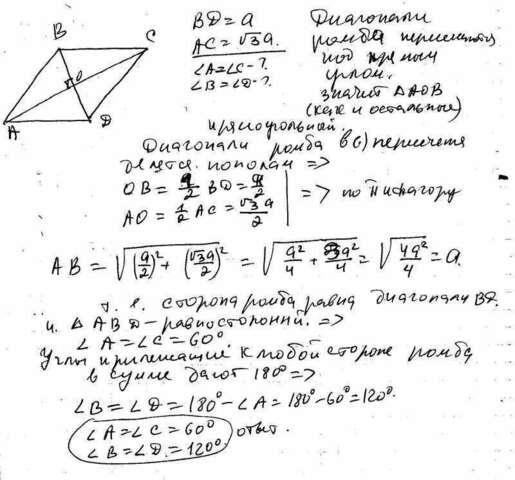 B C
O
A D
BD = a
AC = √3a
∠A=∠C-?
∠B=∠D-?
Диагонали
ромба пересекаются
под прямым
углом.
значит ΔAOB
(как и остальные)
прямоугольный.
Диагонали ромба в (·) пересечения
делятся пополам =>
OB = 1/2 BD = a/2
AO = 1/2 AC = √3a/2
=> по Пифагору
AB = √((a/2)² + (√3a/2)²) = √(a²/4 + 3a²/4) = √(4a²/4) = a.
т. е. сторона ромба равна диагонали BD.
и ΔABD - равносторонний. =>
∠A=∠C=60°.
Углы прилежащие к любой стороне ромба
в сумме дают 180° =>
∠B=∠D=180°-∠A=180°-60°=120°.
∠A=∠C=60°
∠B=∠D=120°.
ответ.